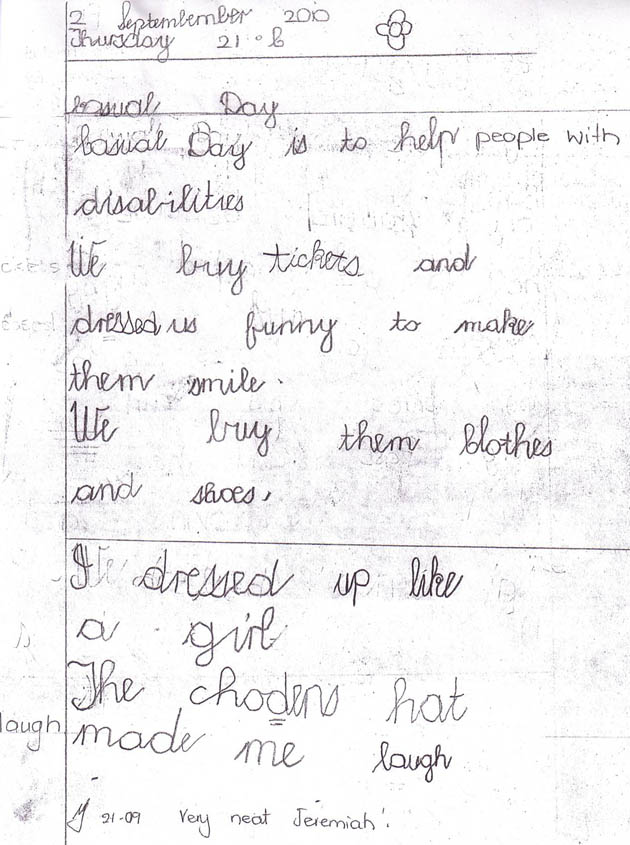 2 Septembember 2010
Thursday 21 ° b
basual Day
basual Day is to help people with
disabilities
We buy tickets and
dressed us funny to make
them smile.
We buy them blothes
and shoes,
He dressed up like
a girl
The chodens hat
laugh made me laugh
21-09 Very neat Jeremiah!